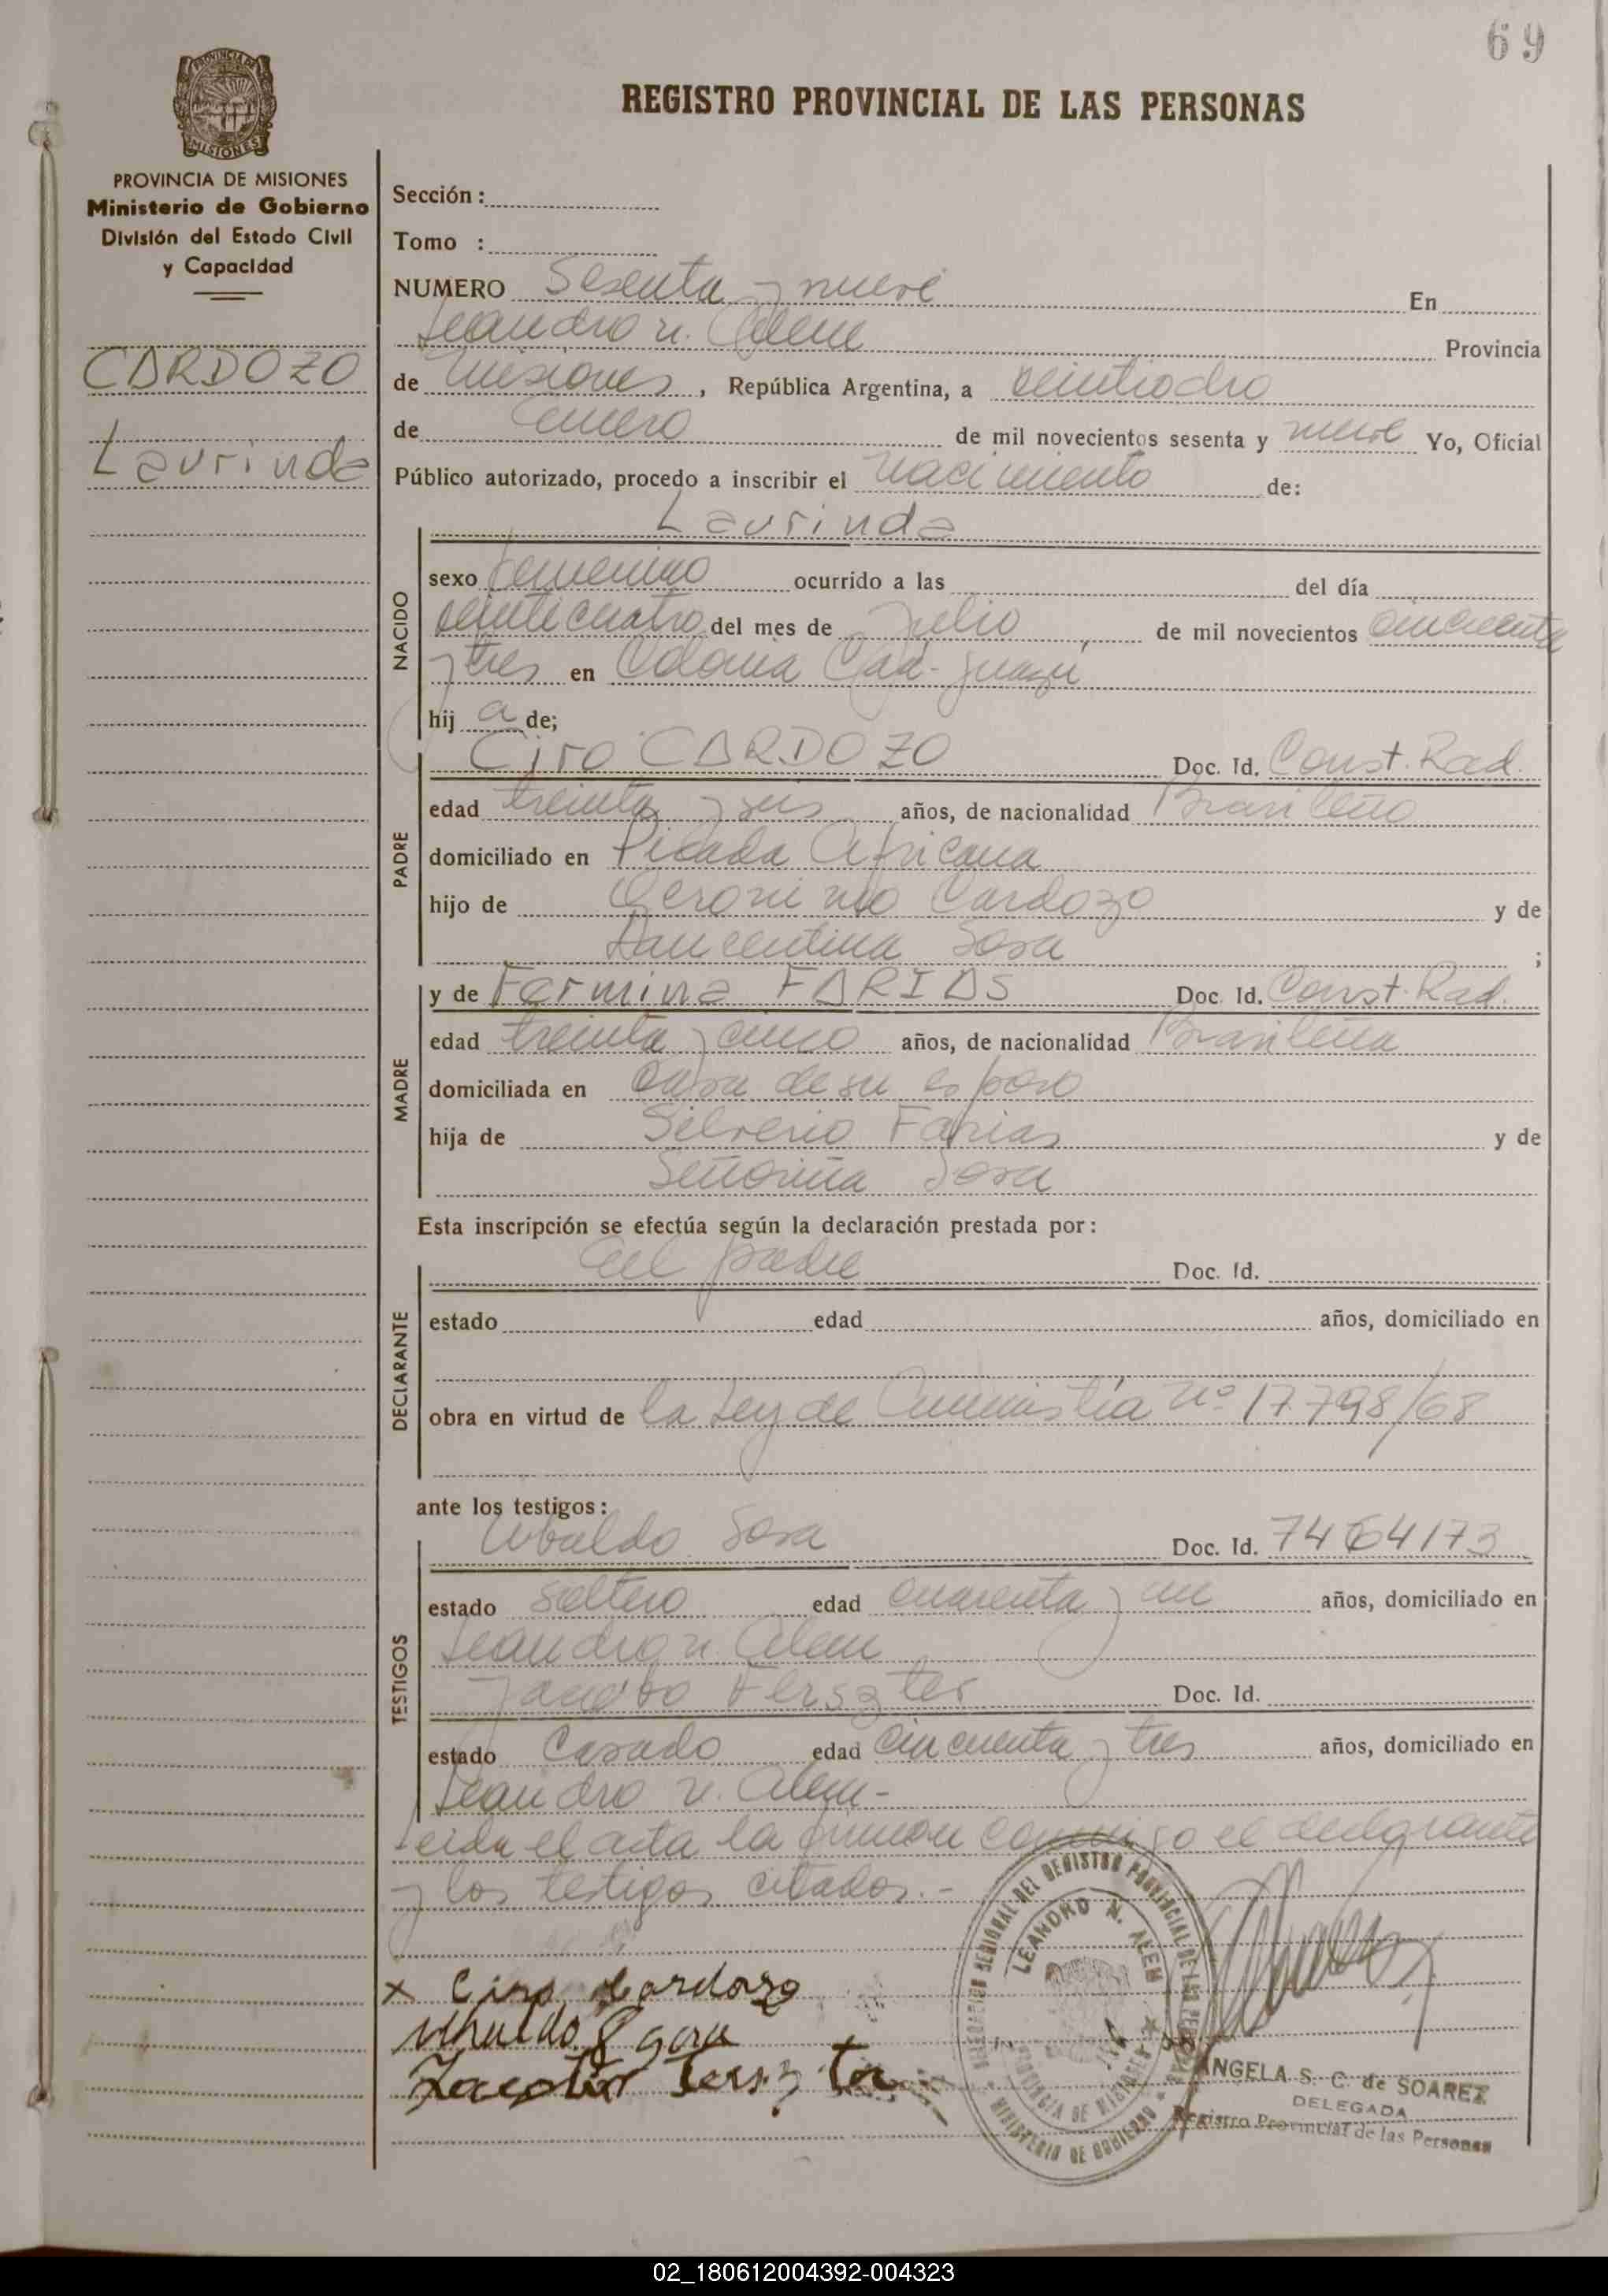 69
REGISTRO PROVINCIAL DE LAS PERSONAS
PROVINCIA DE MISIONES
Ministerio de Gobierno
División del Estado Civil
y Capacidad
CARDOZO
Laurinda
Sección :
Tomo :
NUMERO Sesenta y nueve En
Leandro N. Alem Provincia
de Misiones, República Argentina, a veintiocho
de Enero de mil novecientos sesenta y nueve Yo, Oficial
Público autorizado, procedo a inscribir el nacimiento de:
Laurinda
NACIDO
sexo femenino ocurrido a las del día
veinticuatro del mes de Julio, de mil novecientos cincuenta
y tres en Colonia Caá-Guazú
hij a de;
PADRE
Ciro CARDOZO Doc. Id. Const. Rad.
edad treinta y seis años, de nacionalidad Brasileño
domiciliado en Picada Africana
hijo de Geronimo Cardozo y de
Sosa ;
MADRE
y de Fermina FARIAS Doc. Id. Const. Rad.
edad treinta y cinco años, de nacionalidad Brasileña
domiciliada en Casa de su esposo
hija de Silverio Farias y de
Señoriña Sosa
Esta inscripción se efectúa según la declaración prestada por:
DECLARANTE
El padre Doc. Id.
estado edad años, domiciliado en
obra en virtud de la Ley de Amnistía Nº 17798/68
ante los testigos:
TESTIGOS
Ubaldo Sosa Doc. Id. 7464173
estado soltero edad cuarenta y un años, domiciliado en
Leandro N. Alem
Jacobo Ferszter Doc. Id.
estado Casado edad cincuenta y tres años, domiciliado en
Leandro N. Alem-
Leida el acta la firman conmigo el
y los testigos citados.-
x Ciro Cardozo
LEANDRO N. ALEM
PROVINCIA DE MISIONES
MINISTERIO DE GOBIERNO
ANGELA S. C. de SOAREZ
DELEGADA
Registro Provincial de las Personas
02_180612004392-004323